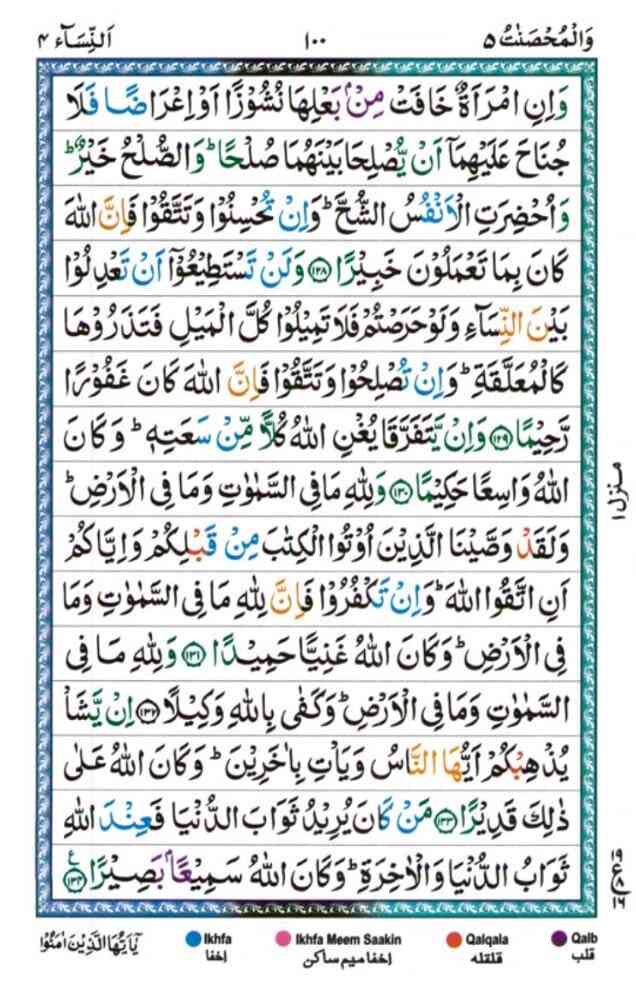 وَالْمُحْصَنٰتُ ۵ ۱۰۰ اَلنِّسَآء ۴
وَاِنِ امْرَاَةٌ خَافَتْ مِنْۢ بَعْلِهَا نُشُوْزًا اَوْ اِعْرَاضًا فَلَا
جُنَاحَ عَلَيْهِمَاۤ اَنْ يُّصْلِحَا بَيْنَهُمَا صُلْحًا ؕ وَالصُّلْحُ خَيْرٌ ؕ
وَاُحْضِرَتِ الْاَنْفُسُ الشُّحَّ ؕ وَاِنْ تُحْسِنُوْا وَتَتَّقُوْا فَاِنَّ اللّٰهَ
كَانَ بِمَا تَعْمَلُوْنَ خَبِيْرًا ﴿۱۲۸﴾ وَلَنْ تَسْتَطِيْعُوْۤا اَنْ تَعْدِلُوْا
بَيْنَ النِّسَآءِ وَلَوْ حَرَصْتُمْ فَلَا تَمِيْلُوْا كُلَّ الْمَيْلِ فَتَذَرُوْهَا
كَالْمُعَلَّقَةِ ؕ وَاِنْ تُصْلِحُوْا وَتَتَّقُوْا فَاِنَّ اللّٰهَ كَانَ غَفُوْرًا
رَّحِيْمًا ﴿۱۲۹﴾ وَاِنْ يَّتَفَرَّقَا يُغْنِ اللّٰهُ كُلًّا مِّنْ سَعَتِهٖ ؕ وَكَانَ
اللّٰهُ وَاسِعًا حَكِيْمًا ﴿۱۳۰﴾ وَلِلّٰهِ مَا فِى السَّمٰوٰتِ وَمَا فِى الْاَرْضِ ؕ
وَلَقَدْ وَصَّيْنَا الَّذِيْنَ اُوْتُوا الْكِتٰبَ مِنْ قَبْلِكُمْ وَاِيَّاكُمْ
اَنِ اتَّقُوا اللّٰهَ ؕ وَاِنْ تَكْفُرُوْا فَاِنَّ لِلّٰهِ مَا فِى السَّمٰوٰتِ وَمَا
فِى الْاَرْضِ ؕ وَكَانَ اللّٰهُ غَنِيًّا حَمِيْدًا ﴿۱۳۱﴾ وَلِلّٰهِ مَا فِى
السَّمٰوٰتِ وَمَا فِى الْاَرْضِ ؕ وَكَفٰى بِاللّٰهِ وَكِيْلًا ﴿۱۳۲﴾ اِنْ يَّشَاْ
يُذْهِبْكُمْ اَيُّهَا النَّاسُ وَيَاْتِ بِاٰخَرِيْنَ ؕ وَكَانَ اللّٰهُ عَلٰى
ذٰلِكَ قَدِيْرًا ﴿۱۳۳﴾ مَنْ كَانَ يُرِيْدُ ثَوَابَ الدُّنْيَا فَعِنْدَ اللّٰهِ
ثَوَابُ الدُّنْيَا وَالْاٰخِرَةِ ؕ وَكَانَ اللّٰهُ سَمِيْعًۢا بَصِيْرًا ﴿۱۳۴﴾ ع
منزل ۱
۱۹
ع ۸
۱۶
يٰۤاَيُّهَا الَّذِيْنَ اٰمَنُوْا
Ikhfa Ikhfa Meem Saakin Qalqala Qalb
إخفا إخفا میم ساکن قلقله قلب